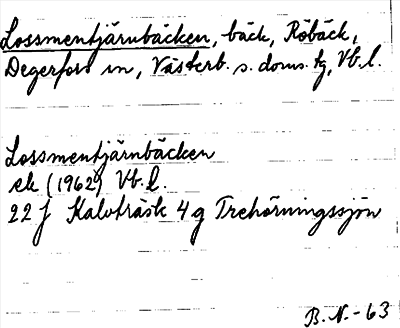 Lossmentjärnbäcken, bäck, Röbäck,
Degerfors sn, Västerb. s. doms. tg, Vb. l.
Lossmentjärnbäcken
ek (1962) Vb. l.
22 J Kalvträsk 4 g Trehörningssjön
B. N. - 63